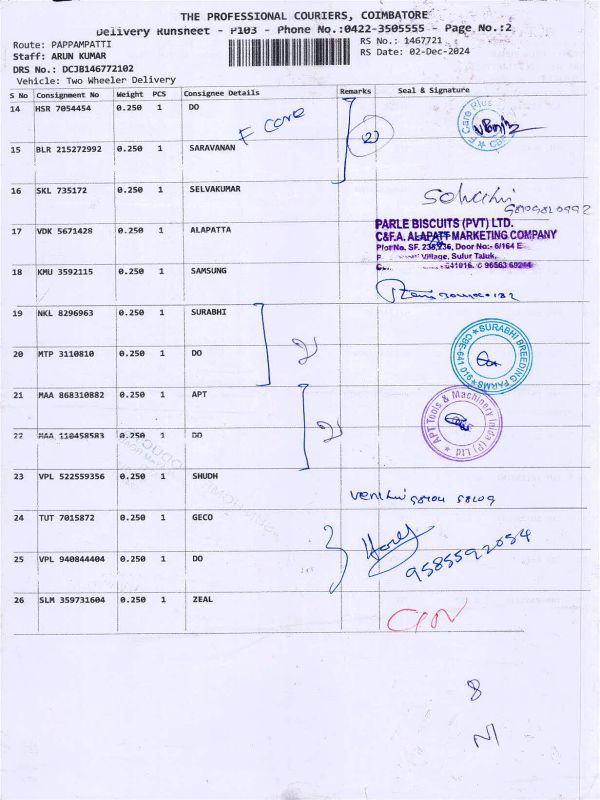 THE PROFESSIONAL COURIERS, COIMBATORE
Delivery Runsheet - P103 - Phone No.:0422-3505555 - Page No.:2
Route: PAPPAMPATTI
RS No.: 1467721
Staff: ARUN KUMAR
RS Date: 02-Dec-2024
DRS No.: DC3B146772102
Vehicle: Two Wheeler Delivery
S No Consignment No Weight PCS Consignee Details Remarks Seal & Signature
14 HSR 7054454 0.250 1 DO
F Care
2
F Care Plus
15 BLR 215272992 0.250 1 SARAVANAN
16 SKL 735172 0.250 1 SELVAKUMAR
17 VDK 5671428 0.250 1 ALAPATTA
PARLE BISCUITS (PVT) LTD.
C&F.A. ALAPATT MARKETING COMPANY
Plot No. SF. 235,236, Door No:- 6/164 E
Village, Sulur Taluk,
641016. 96563 69244
18 KMU 3592115 0.250 1 SAMSUNG
19 NKL 8296963 0.250 1 SURABHI
2
SURABHI BREEDING FARMS
20 MTP 3110810 0.250 1 DO
21 MAA 868310882 0.250 1 APT
2
APT Tools & Machinery India (P) Ltd
22 MAA 110458583 0.250 1 DO
23 VPL 522559356 0.250 1 SHUDH
24 TUT 7015872 0.250 1 GECO
9585592054
25 VPL 940844404 0.250 1 DO
26 SLM 359731604 0.250 1 ZEAL
8
N